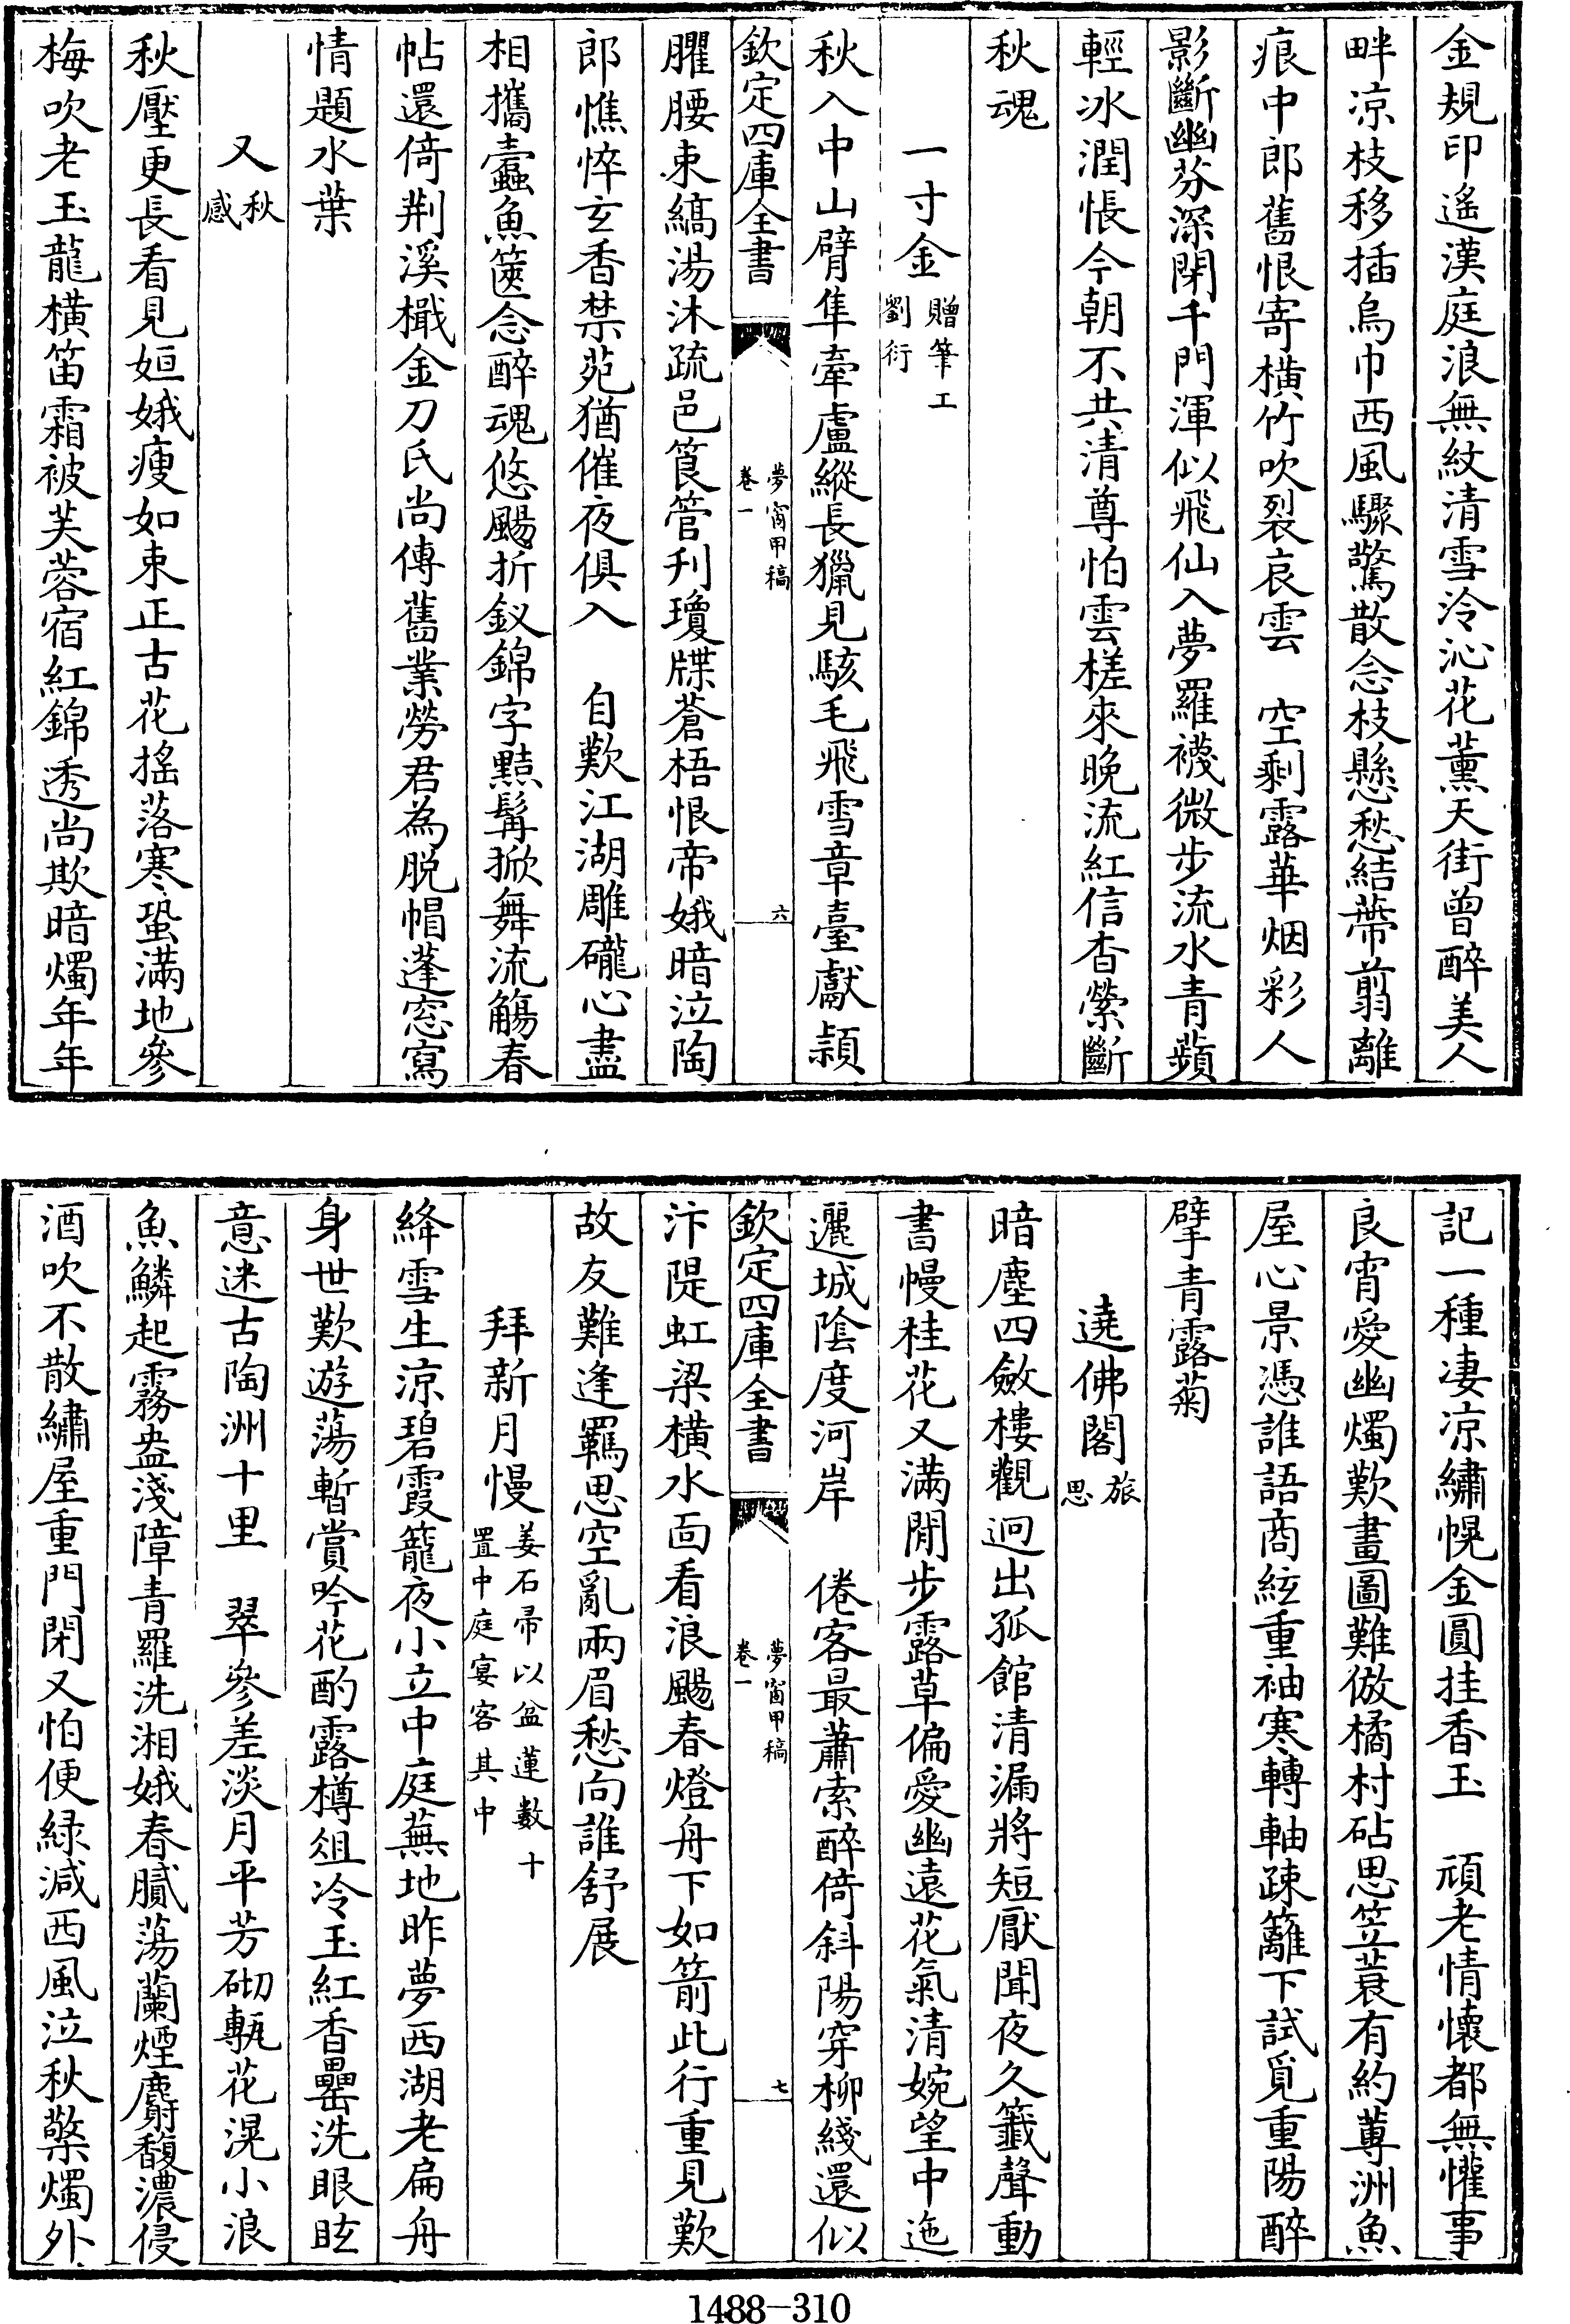 金規印遙漢庭浪無紋清雪冷沁花薰天街曾醉美人
畔凉枝移插烏巾西風驟驚散念枝懸愁結蔕翦離
痕中郎舊恨寄橫竹吹裂哀雲　空剩露華烟彩人
影斷幽芬深閉千門渾似飛仙入夢羅襪微步流水青蘋
輕冰潤悵今朝不共清尊怕雲槎來晚流紅信杳縈斷
秋魂
一寸金贈筆工劉衍
秋入中山臂隼牽盧縱長獵見駭毛飛雪章臺獻頴
欽定四庫全書　夢窗甲稿卷一　六
臞腰束縞湯沐疏邑筤管刋瓊牒蒼梧恨帝娥暗泣陶
郎憔悴玄香禁苑猶催夜俱入　自歎江湖雕礲心盡
相攜蠹魚篋念醉魂悠颺折釵錦字黠髯掀舞流觴春
帖還倚荆溪檝金刀氏尚傳舊業勞君為脱帽蓬窓寫
情題水葉
又秋感
秋壓更長看見姮娥瘦如束正古花搖落寒蛩滿地參
梅吹老玉龍橫笛霜被芙蓉宿紅錦透尚欺暗燭年年
記一種凄凉繡幌金圓挂香玉　頑老情懷都無懽事
良宵愛幽燭歎畫圖難倣橘村砧思笠蓑有約蓴洲魚
屋心景憑誰語商絃重袖寒轉軸疎籬下試覓重陽醉
擘青露菊
遶佛閣旅思
暗塵四斂樓觀迥出孤館清漏將短厭聞夜久籤聲動
書幔桂花又滿閒步露草偏愛幽遠花氣清婉望中迤
邐城陰度河岸　倦客最蕭索醉倚斜陽穿柳綫還似
欽定四庫全書　夢窗甲稿卷一　七
汴隄虹梁橫水面看浪颺春燈舟下如箭此行重見歎
故友難逢羈思空亂兩眉愁向誰舒展
拜新月慢姜石帚以盆蓮數十置中庭宴客其中
絳雪生涼碧霞籠夜小立中庭蕪地昨夢西湖老扁舟
身世歎遊蕩暫賞吟花酌露樽俎冷玉紅香罍洗眼眩
意迷古陶洲十里　翠參差淡月平芳砌甎花滉小浪
魚鱗起霧盎淺障青羅洗湘娥春膩蕩蘭煙麝馥濃侵
酒吹不散繡屋重門閉又怕便緑減西風泣秋檠燭外
1488—310